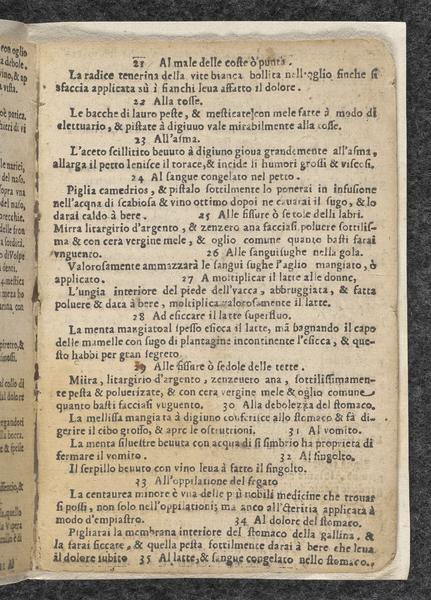 con oglio
a debole.
vino, & ap
a vista.
21 Al male delle coste ò punta.
La radice tenerina della vite bianca bollita nell'oglio finche si
sfaccia applicata sù i fianchi leua affatto il dolore.
22 Alla tosse.
Le bacche di lauro peste, & mesticate con mele fatte à modo di
elettuario, & pistate à digiuuo vale mirabilmente alla tosse.
23 All'asma.
L'aceto scillitito beuuto à digiuno gioua grandemente all'asma,
allarga il petto lenisce il torace, & incide li humori grossi & viscosi.
24 Al sangue congelato nel petto.
Piglia camedrios, & pistalo sottilmente lo ponerai in infusione
nell'acqua di scabiosa & vino ottimo dopoi ne cauarai il sugo, & lo
darai caldo à bere. 25 Alle fissure ò setole delli labri.
Mirra litargirio d'argento, & zenzero ana facciasi poluere sottilis-
ma & con cera vergine mele, & oglio comune quanto basti farai
vnguento. 26 Alle sanguisughe nella gola.
Valorosamente ammazzarà le sangui sughe l'aglio mangiato, ò
applicato. 27 A moltiplicar il latte alle donne,
L'ungia interiore del piede dell'vacca, abbruggiata, & fatta
poluere & data à bere, moltiplica valorosamente il latte.
28 Ad esiccare il latte superfluo.
La menta mangiatoal spesso esicca il latte, mà bagnando il capo
delle mamelle con sugo di plantagine incontinente l'esicca, & que-
sto habbi per gran segreto
29 Alle fissure ò sedole delle tette.
Miira, litargirio d'argento, zenzeuero ana, sottilissimamen-
te pesta & poluerizate, & con cera vergine mele & oglio comune
quanto basti facciasi vuguento. 30 Alla debolezza del stomaco.
La mellissa mangiata à digiuno conferisce allo stomaco & fà di-
gerire il cibo grosso, & apre le ostrutrioni. 31 Al vomito.
La menta siluestre beuuta con acqua di si simbrio ha proprietà di
fermare il vomito. 32 Al singolto.
Il serpillo beuuto con vino leua à fatto il singolto.
33 All'oppilatione del fegato
La centaurea minore è vna delle più nobili medicine che trouar
si possi, non solo nell'oppilationi, ma anco all'cteritia applicata à
modo d'empiastro. 34 Al dolore del stomaco.
Pigliarai la membrana interiore del stomaco della gallina, &
la farai siccare, & quella pesta sottilmente darai à bere che leua
il dolore subito 35 Al latte, & sangue congelato nello stomaco.